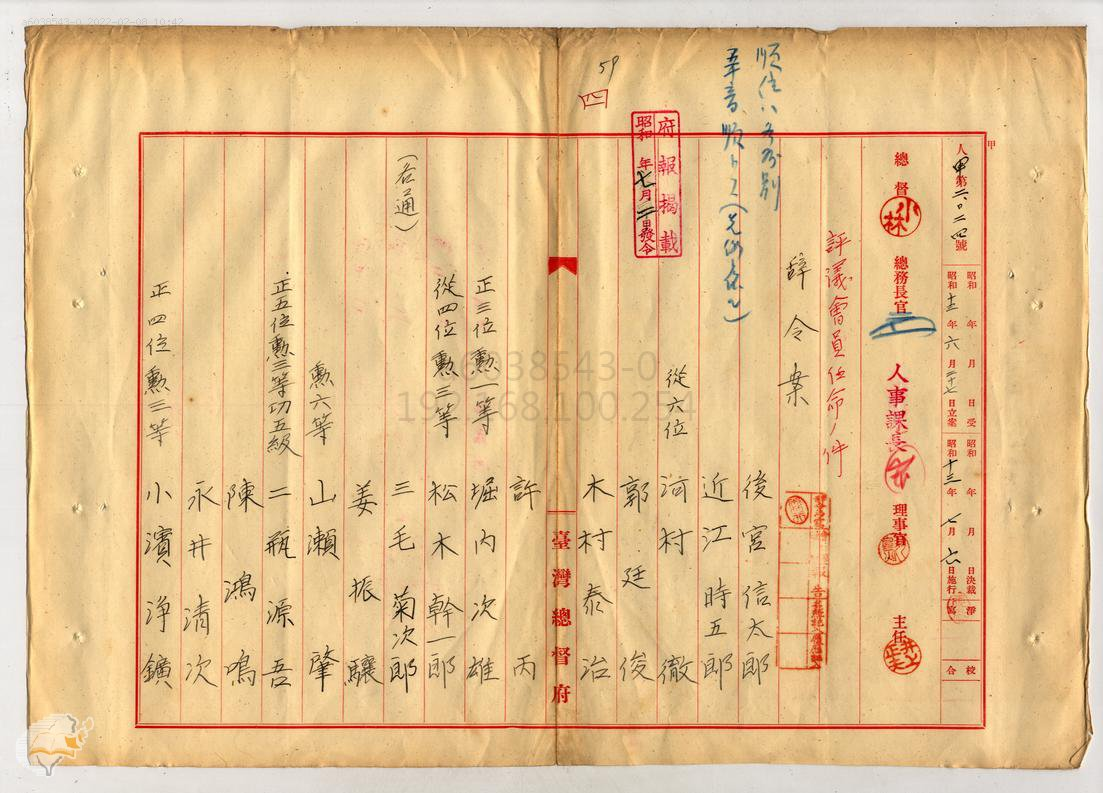 a6038543-0 2022-02-08 10:42
甲
人甲第三〇二四號
昭和 年 月 日受
昭和十三年六月二十七日立案
昭和 年 月 日決裁
昭和十三年七月六日施行
淨寫
校合
總督 小林
總務長官
人事課長
理事官
主任
評議會員任命ノ件
辭令案
順位ハ各別
五十音順トス
府報掲載
昭和 年七月二日發令
59
四
後宮信太郎
近江時五郎
從六位 河村徹
郭廷俊
木村泰治
臺灣總督府
許丙
正三位勲一等 堀内次雄
從四位勲三等 松木幹一郎
三毛菊次郎
姜振驤
勲六等 山瀬肇
正五位勲三等功五級 二瓶源吾
陳鴻鳴
永井清次
正四位勲三等 小濱浄鑛
(各通)
a6038543-0
192.168.100.254